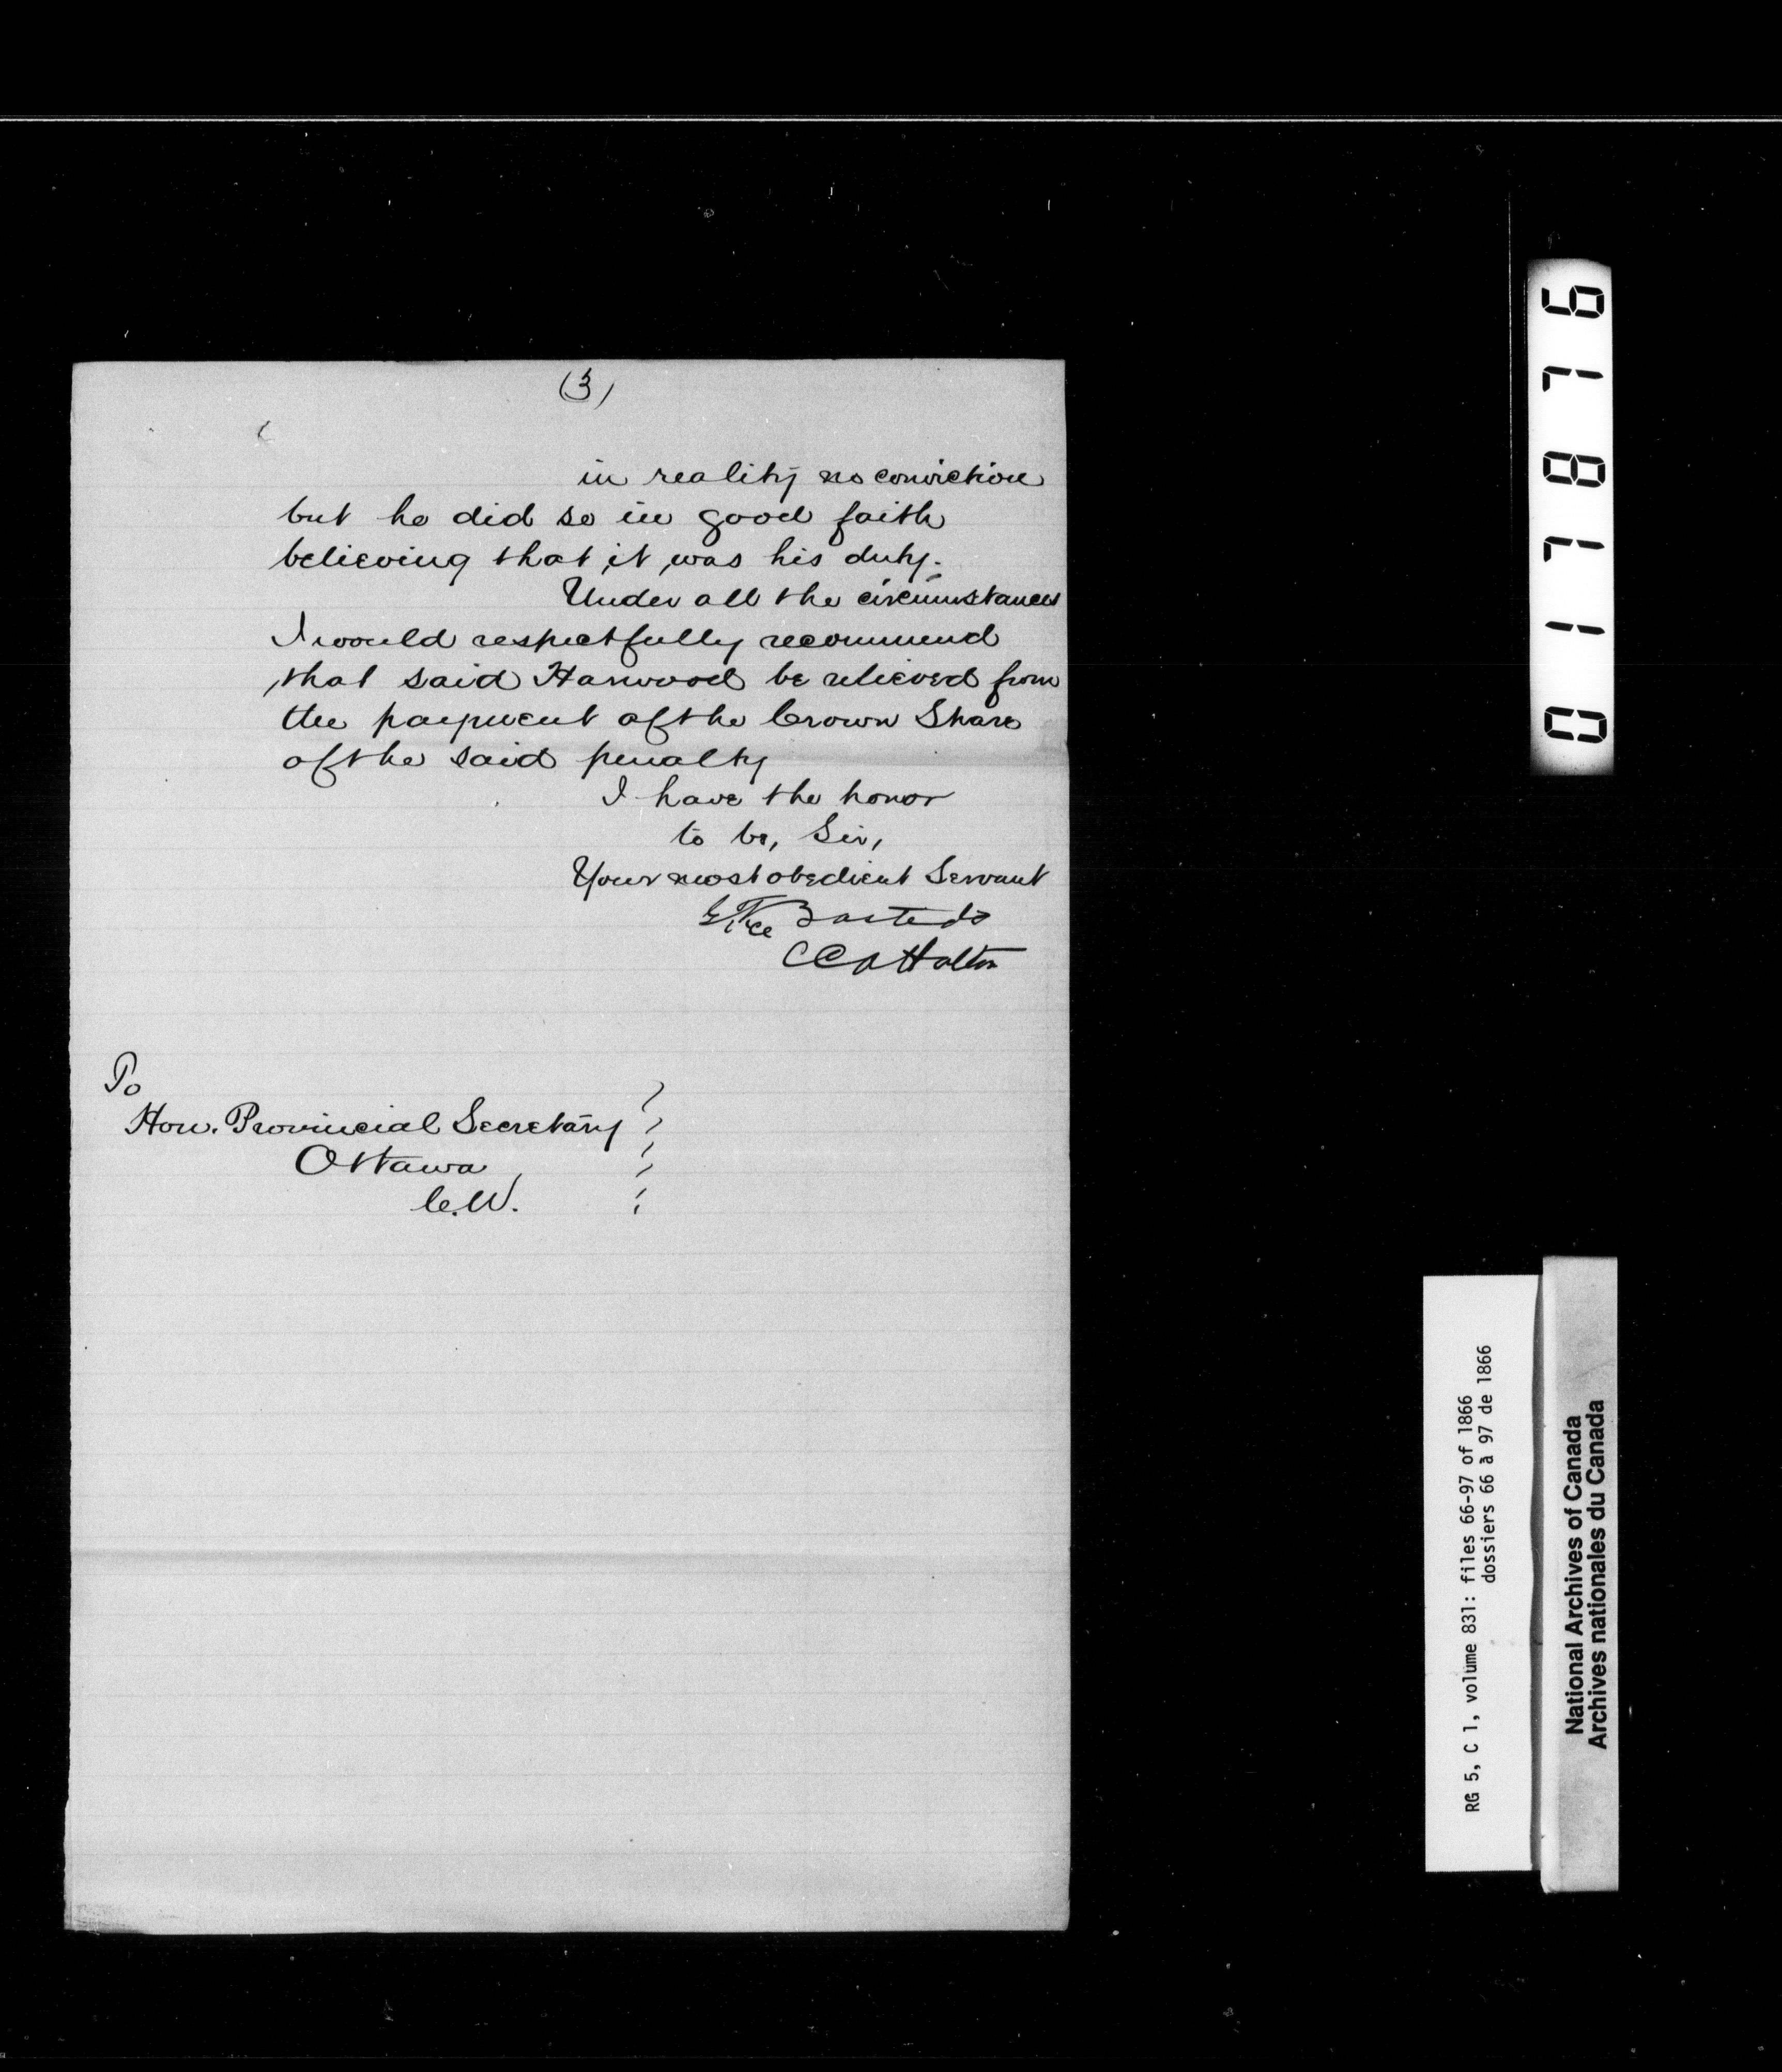 (3)
in reality no conviction
but he did so in good faith
believing that it was his duty.
Under all the circumstances
I would respectfully recommend
that said Harwood be relieved from
the payment of the Crown Share
of the said penalty
I have the honor
to be, Sir,
Your most obedient Servant
Bastedo
CCA Halton
To
Hon. Provincial Secretary
Ottawa
C.W.
017876
RG 5, C 1, volume 831: files 66-97 of 1866
dossiers 66 à 97 de 1866
National Archives of Canada
Archives nationales du Canada